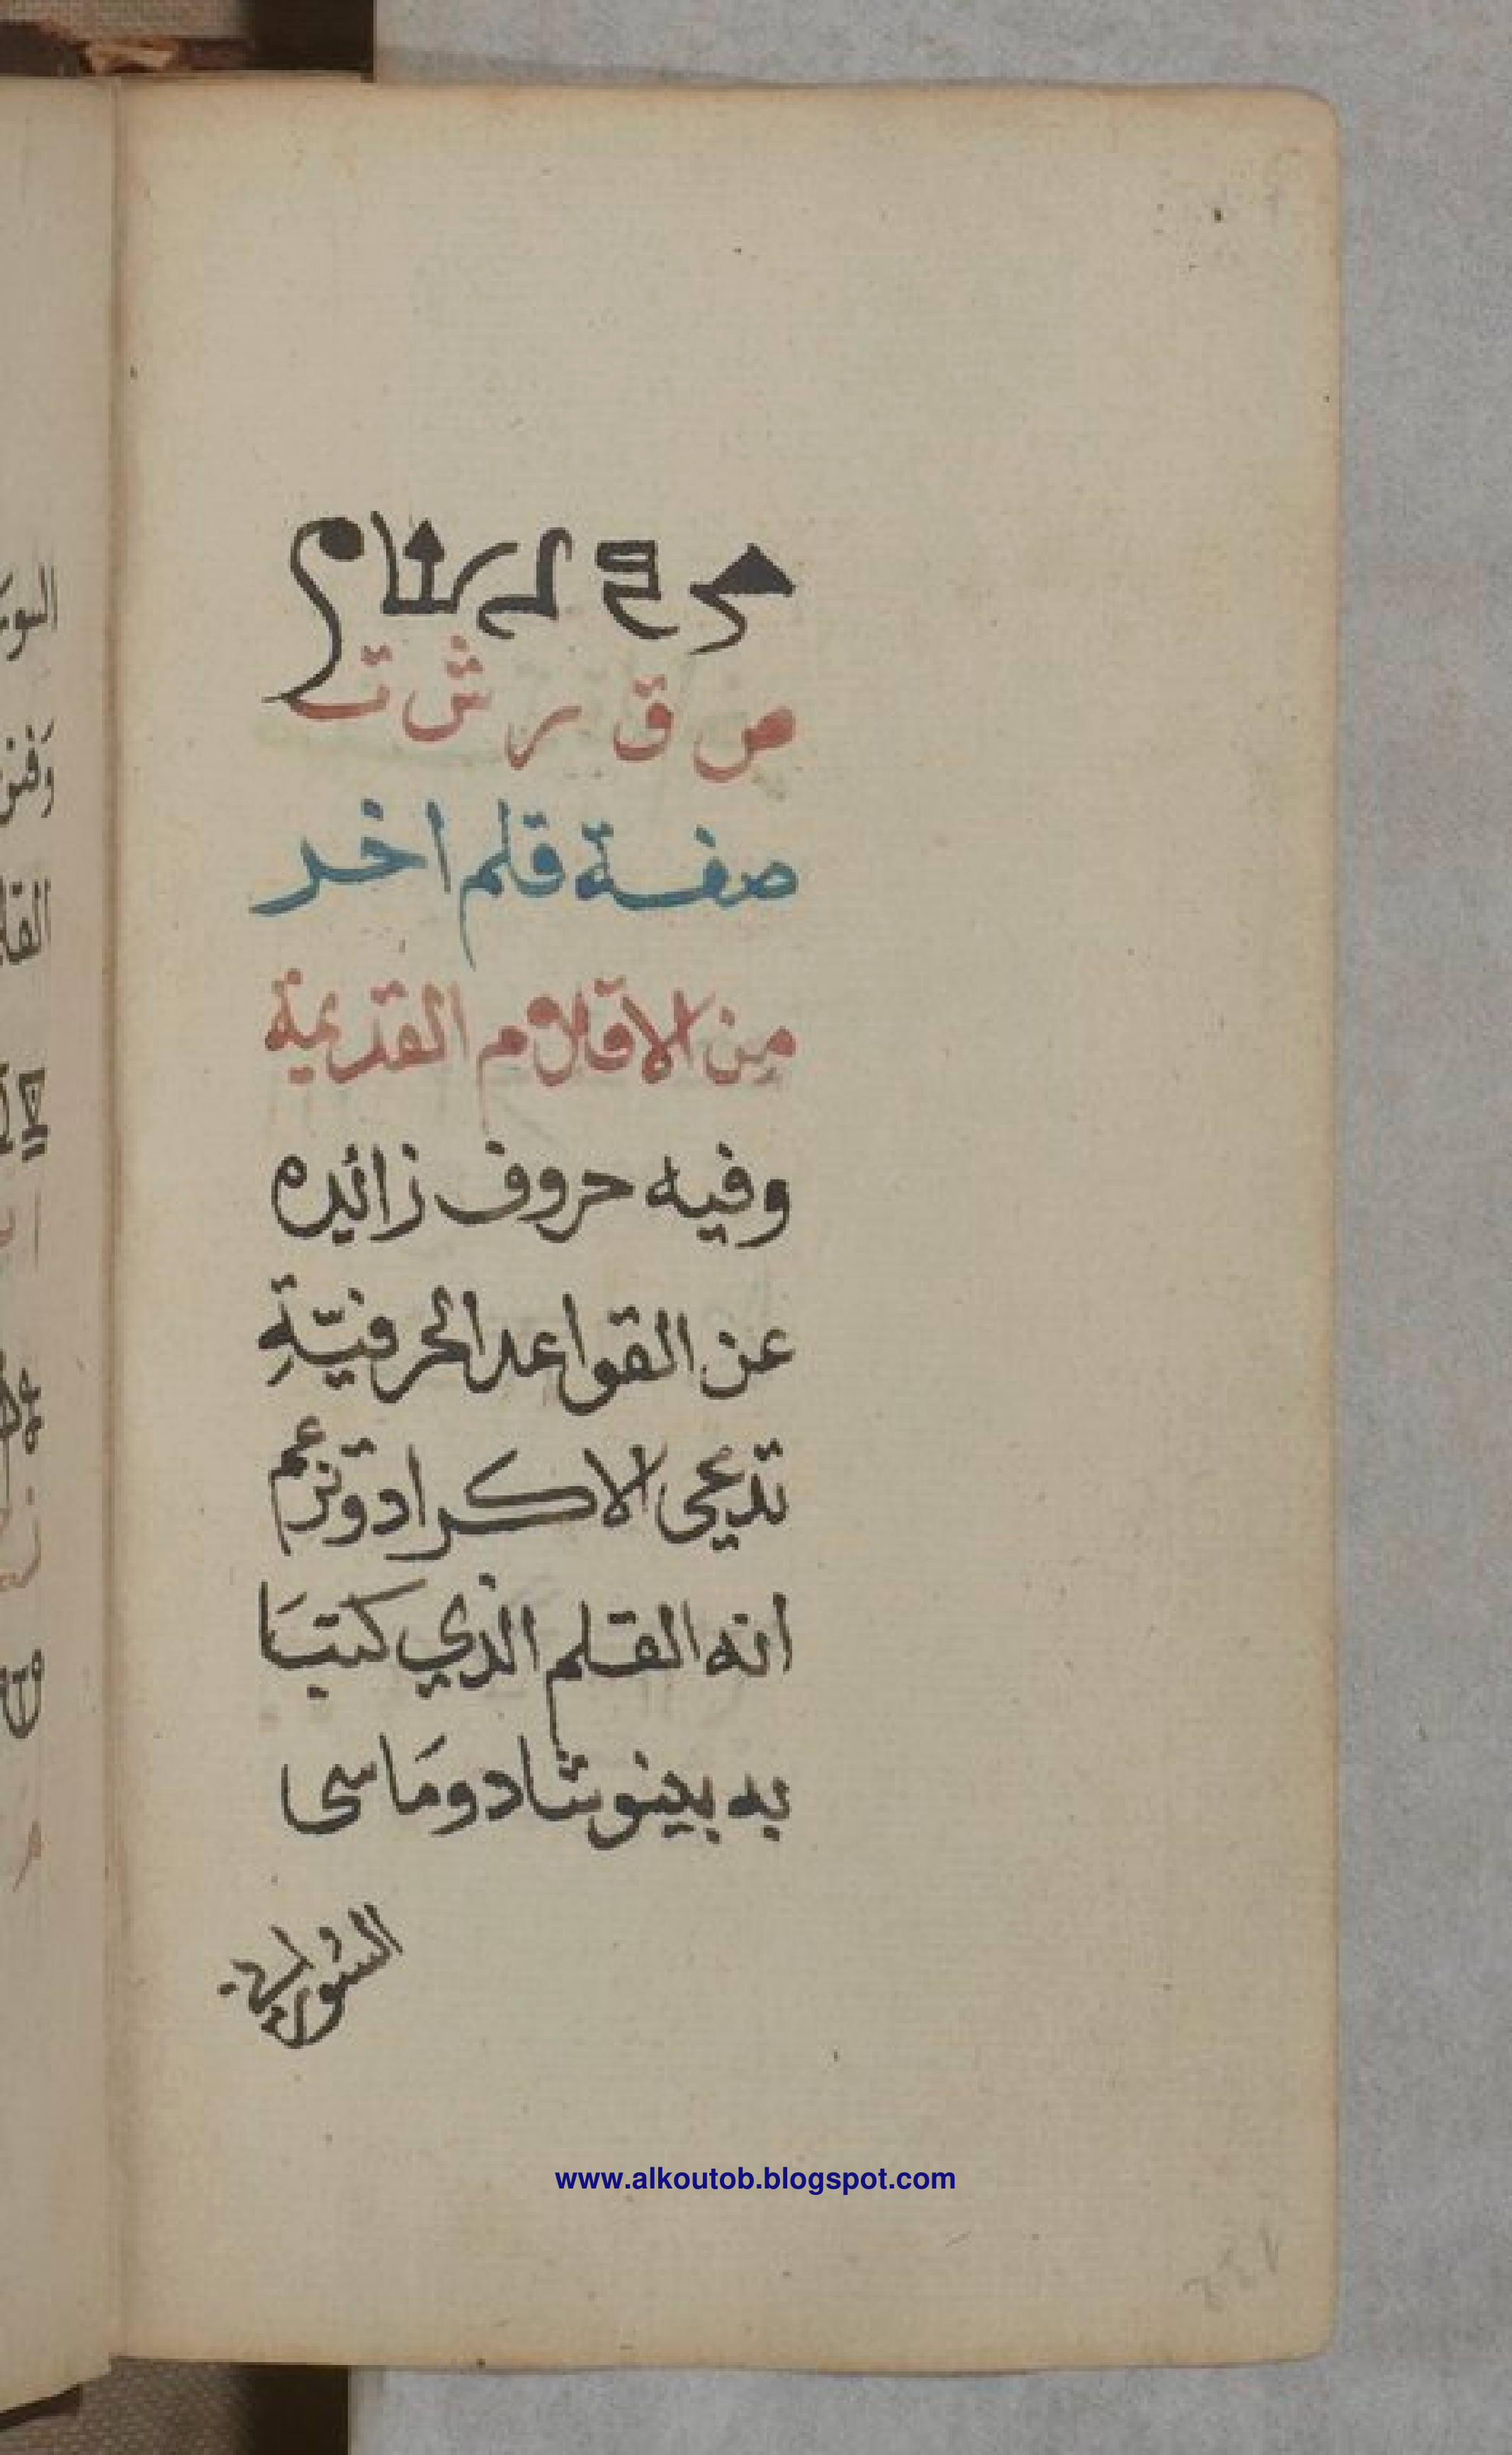 ص ق ر ش ت
صفة قلم اخر
من الاقلام القديمة
وفيه حروف زائده
عن القواعد الحرفيّةِ
تدعى الاكراد وتزعم
انه القلم الذي كتبَا
به بينوشاد ومَاسى
السوراتى
www.alkoutob.blogspot.com